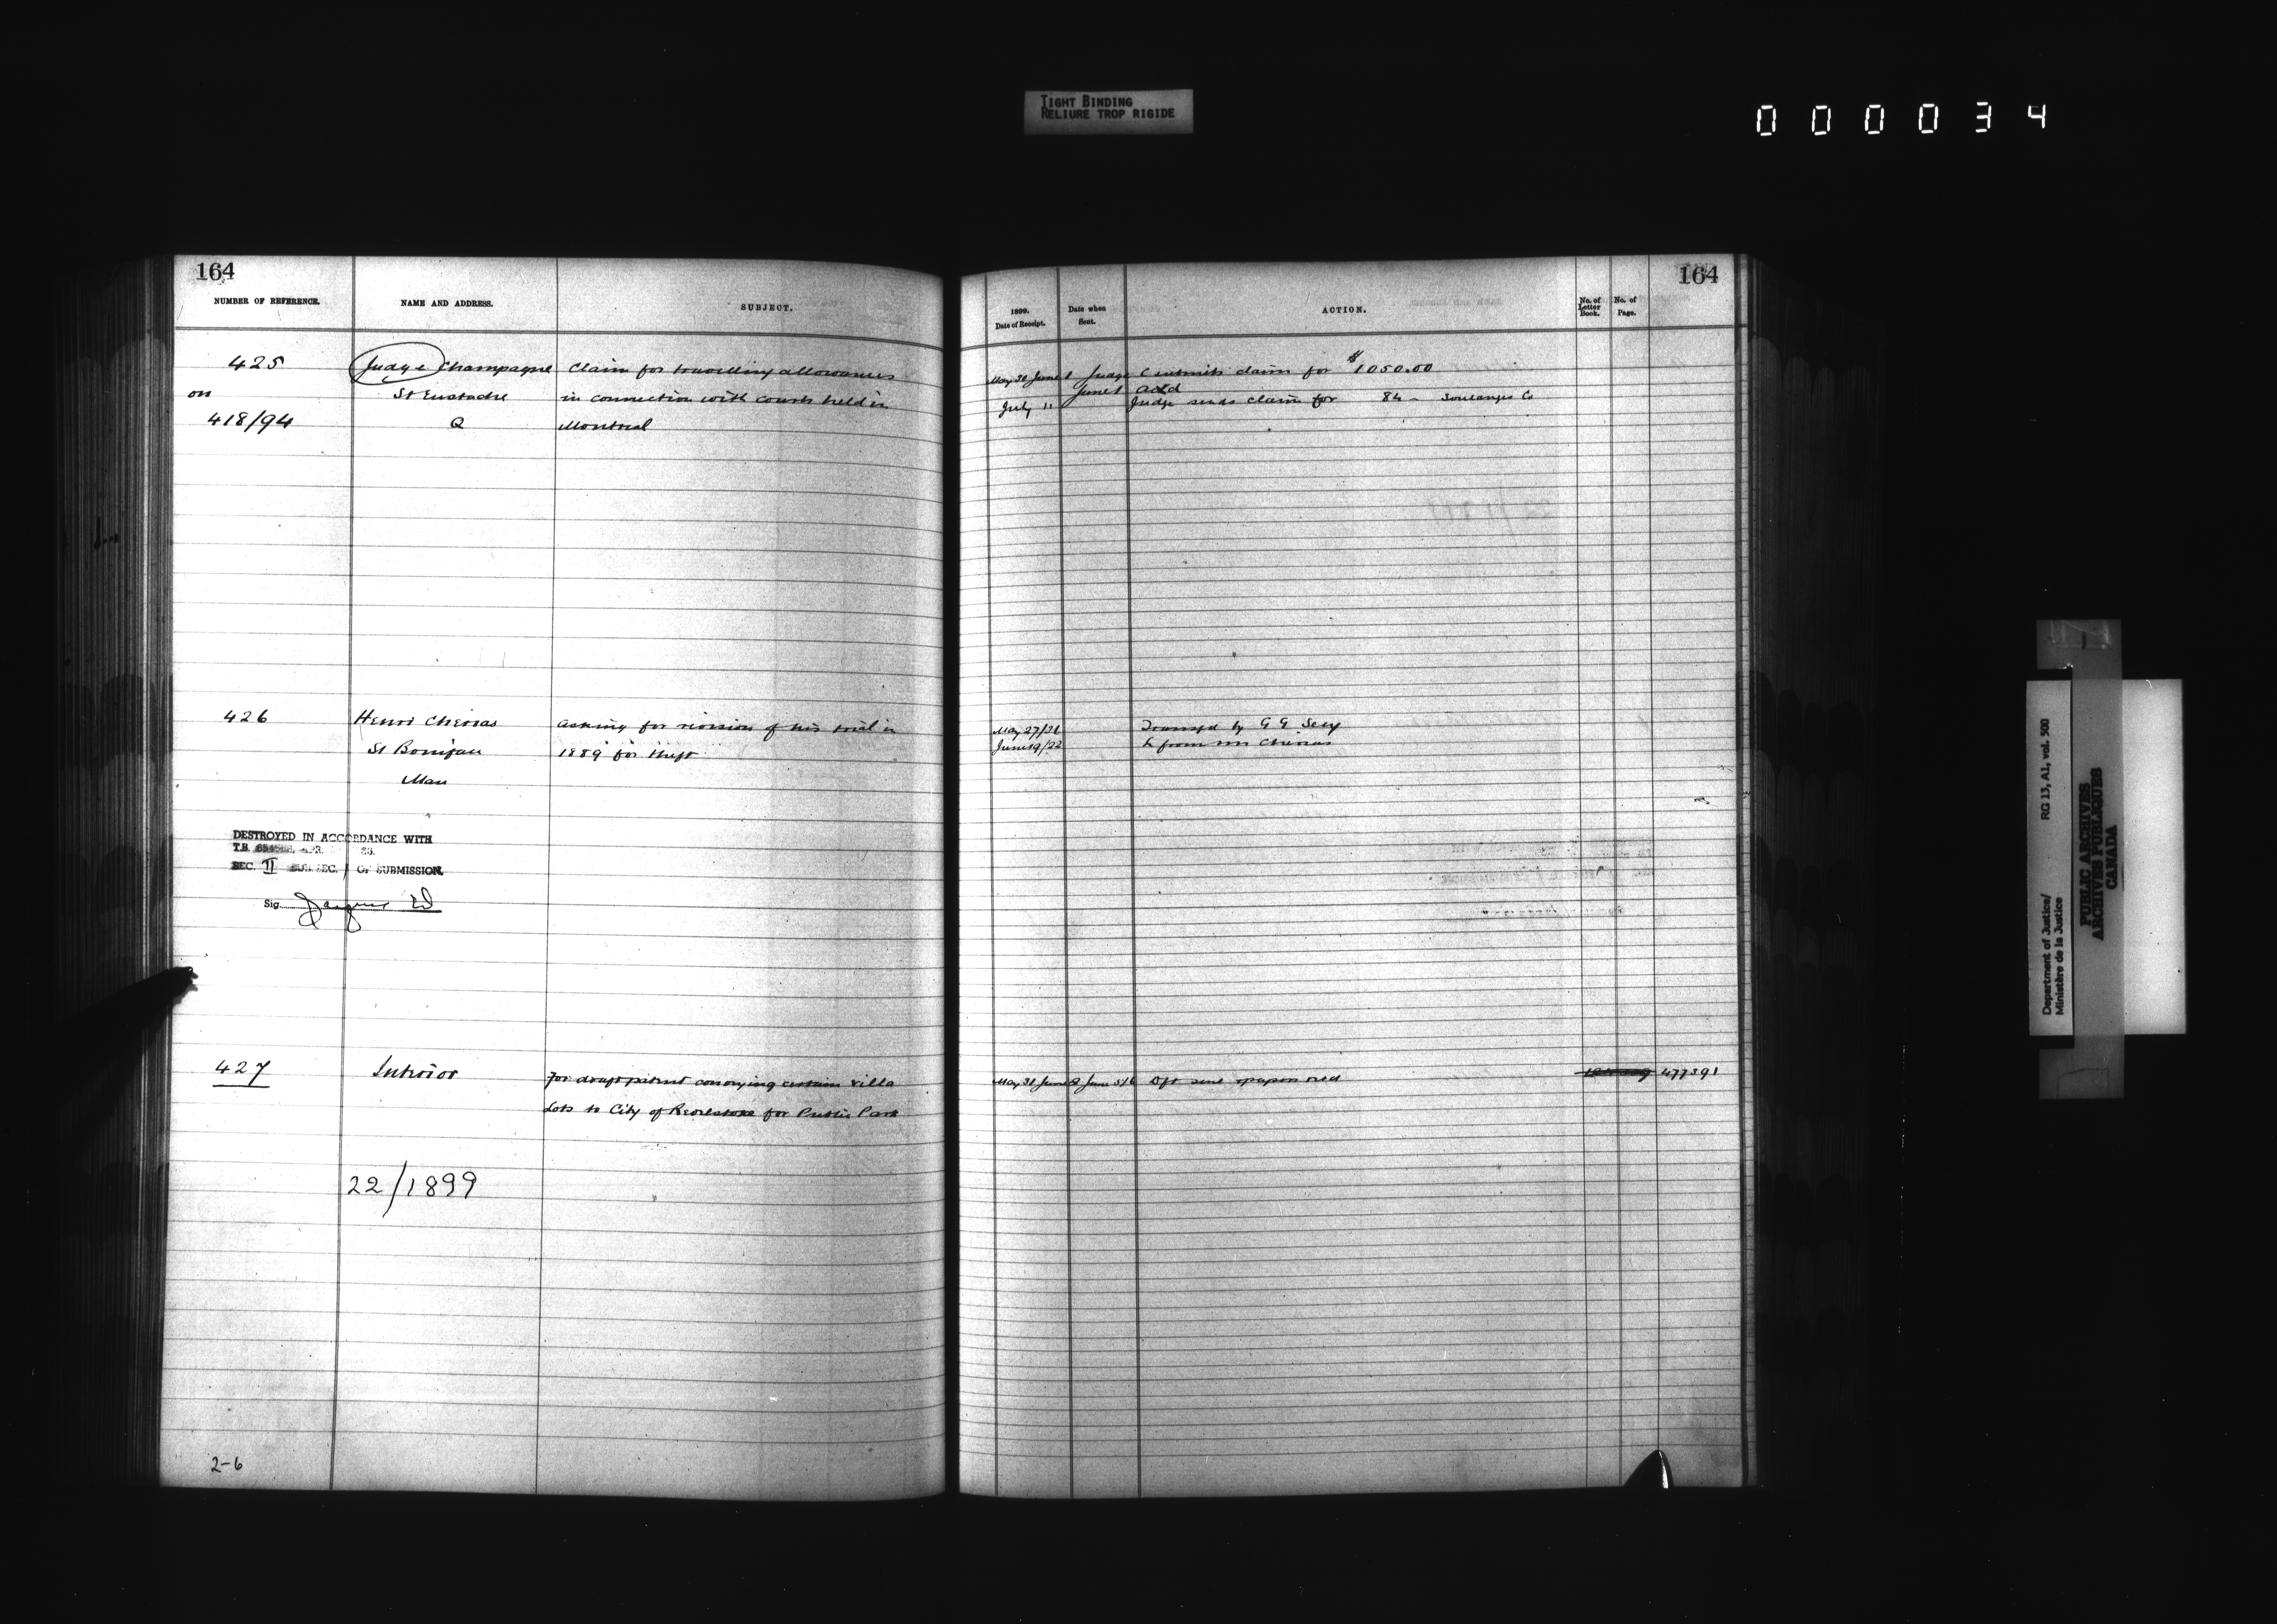 TIGHT BINDING
RELIURE TROP RIGIDE
000034
164
NUMBER OF REFERENCE.
NAME AND ADDRESS.
SUBJECT.
425
Judge Champagne
Claim for travelling allowances
on
St Eustache
in connection with courts held in
418/94
Q
Montreal
426
Henri
asking for revision of his trial in
St Boniface
1889 for theft
Man
DESTROYED IN ACCORDANCE WITH
T.B.
SEC. II SUB. SEC. / OF SUBMISSION.
Sig.
427
Interior
For draft patent conveying certain villa
Lots to City of Revelstoke for Public Park
22/1899
2-6
164
1899.
Date of Receipt.
Date when
Sent.
ACTION.
No. of
Letter
Book.
No. of
Page.
May 30 June 1 Judge C submits claim for $1050.00
June 1 ackd
July 11 Judge sends claim for 84 - Soulanges Co
May 27/31 Transfd by G G Secy
June 19/22 L from
May 31 June 2 June 5/6 Dft sent papers retd
477391
Department of Justice/
Ministère de la Justice
RG 13, A1, vol. 500
PUBLIC ARCHIVES
ARCHIVES PUBLIQUES
CANADA